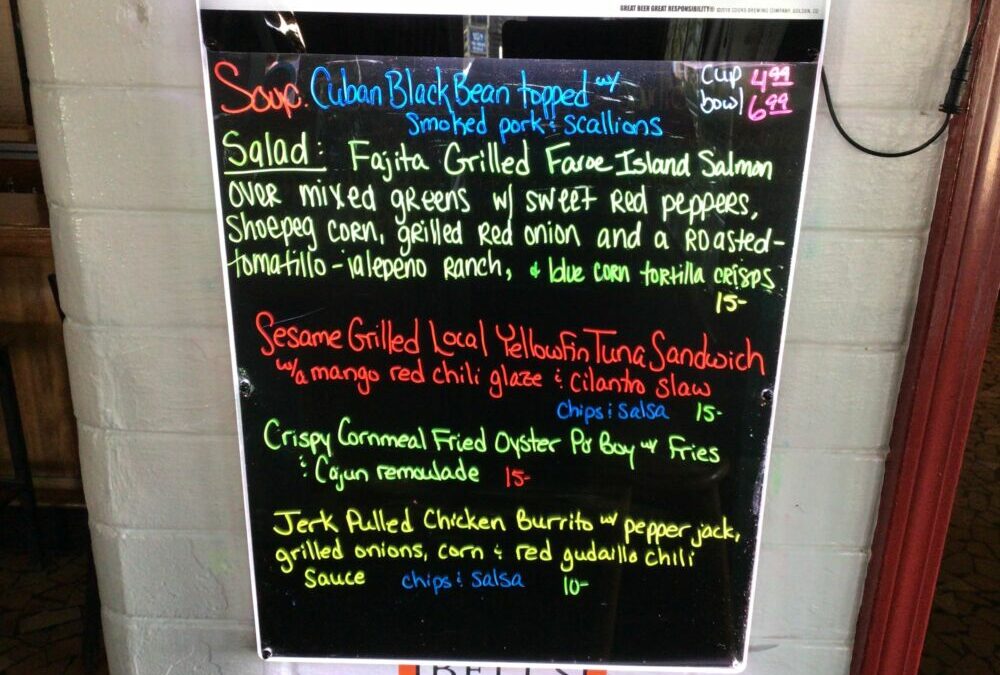 GREAT BEER GREAT RESPONSIBILITY® ©2018 COORS BREWING COMPANY, GOLDEN, CO
Soup. Cuban Black Bean topped w/ cup 4.99
Smoked pork & scallions bowl 6.99
Salad: Fajita Grilled Faroe Island Salmon
over mixed greens w/ sweet red peppers,
Shoepeg corn, grilled red onion and a roasted-
tomatillo-jalepeño ranch, & blue corn tortilla crisps
15-
Sesame Grilled Local Yellowfin Tuna Sandwich
w/a mango red chili glaze & cilantro slaw
Chips & Salsa 15-
Crispy Cornmeal Fried Oyster Po Boy w/ Fries
& Cajun remoulade 15-
Jerk Pulled Chicken Burrito w/ pepper jack,
grilled onions, corn & red gudaillo chili
Sauce chips & Salsa 10-
BELL'S